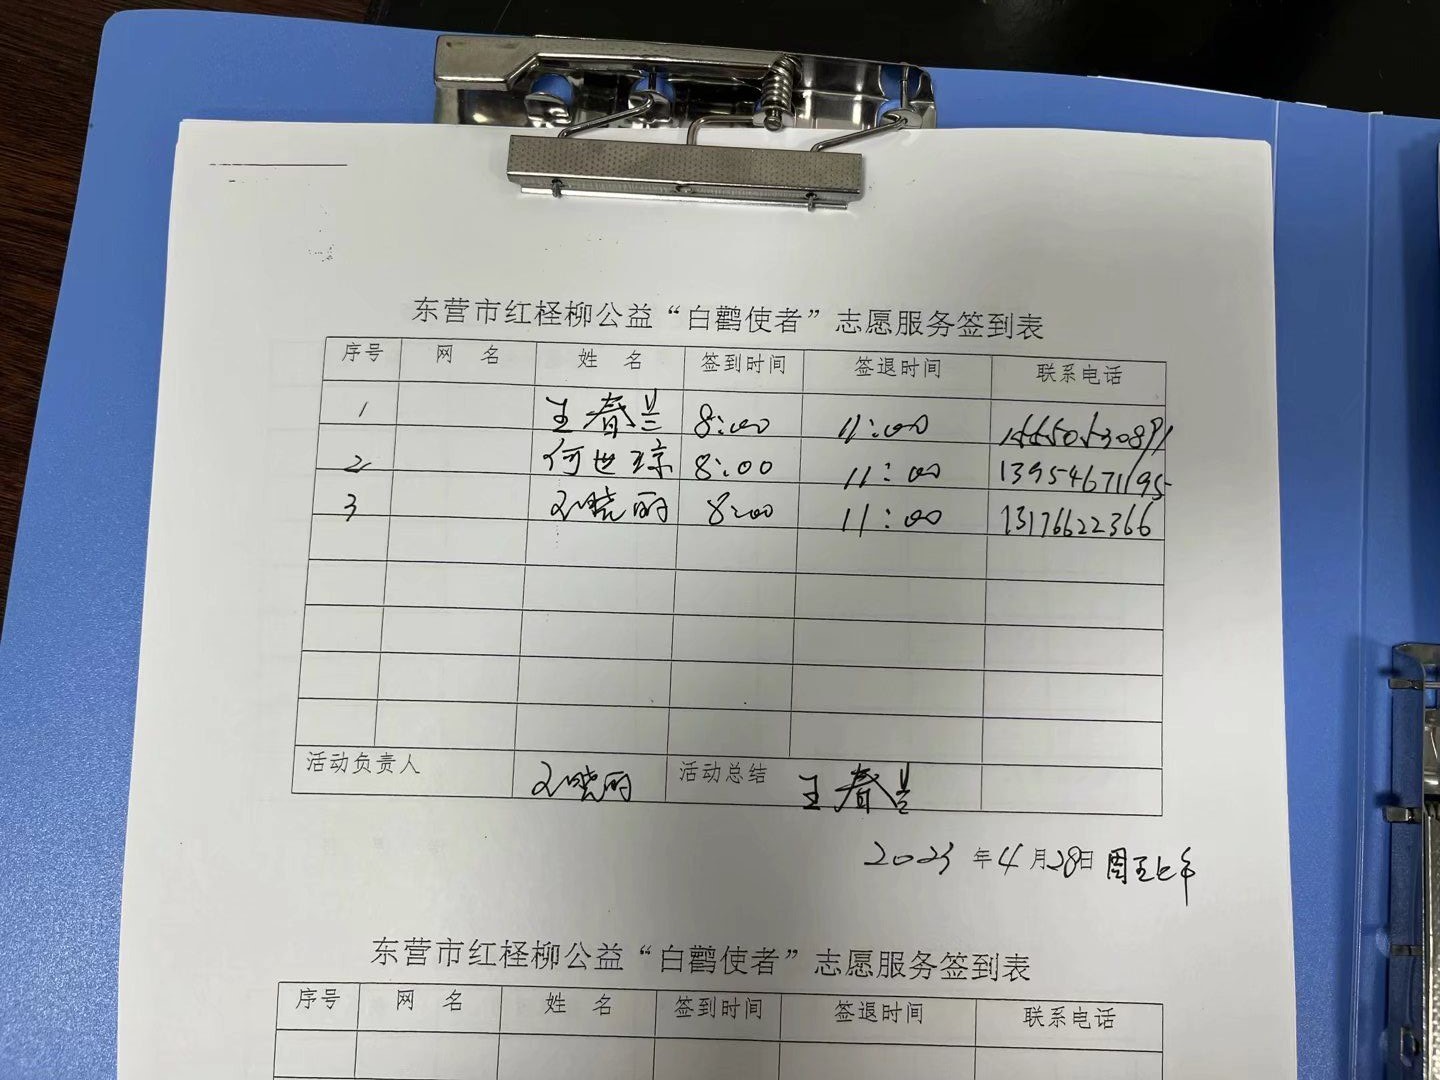 东营市红柽柳公益“白鹳使者”志愿服务签到表
序号 网 名 姓 名 签到时间 签退时间 联系电话
1 王春兰 8:00 11:00
2 何世琼 8:00 11:00 13954671195
3 刘晓丽 8:00 11:00 13176622366
活动负责人 刘晓丽 活动总结 王春兰
2023年4月28日周五上午
东营市红柽柳公益“白鹳使者”志愿服务签到表
序号 网 名 姓 名 签到时间 签退时间 联系电话